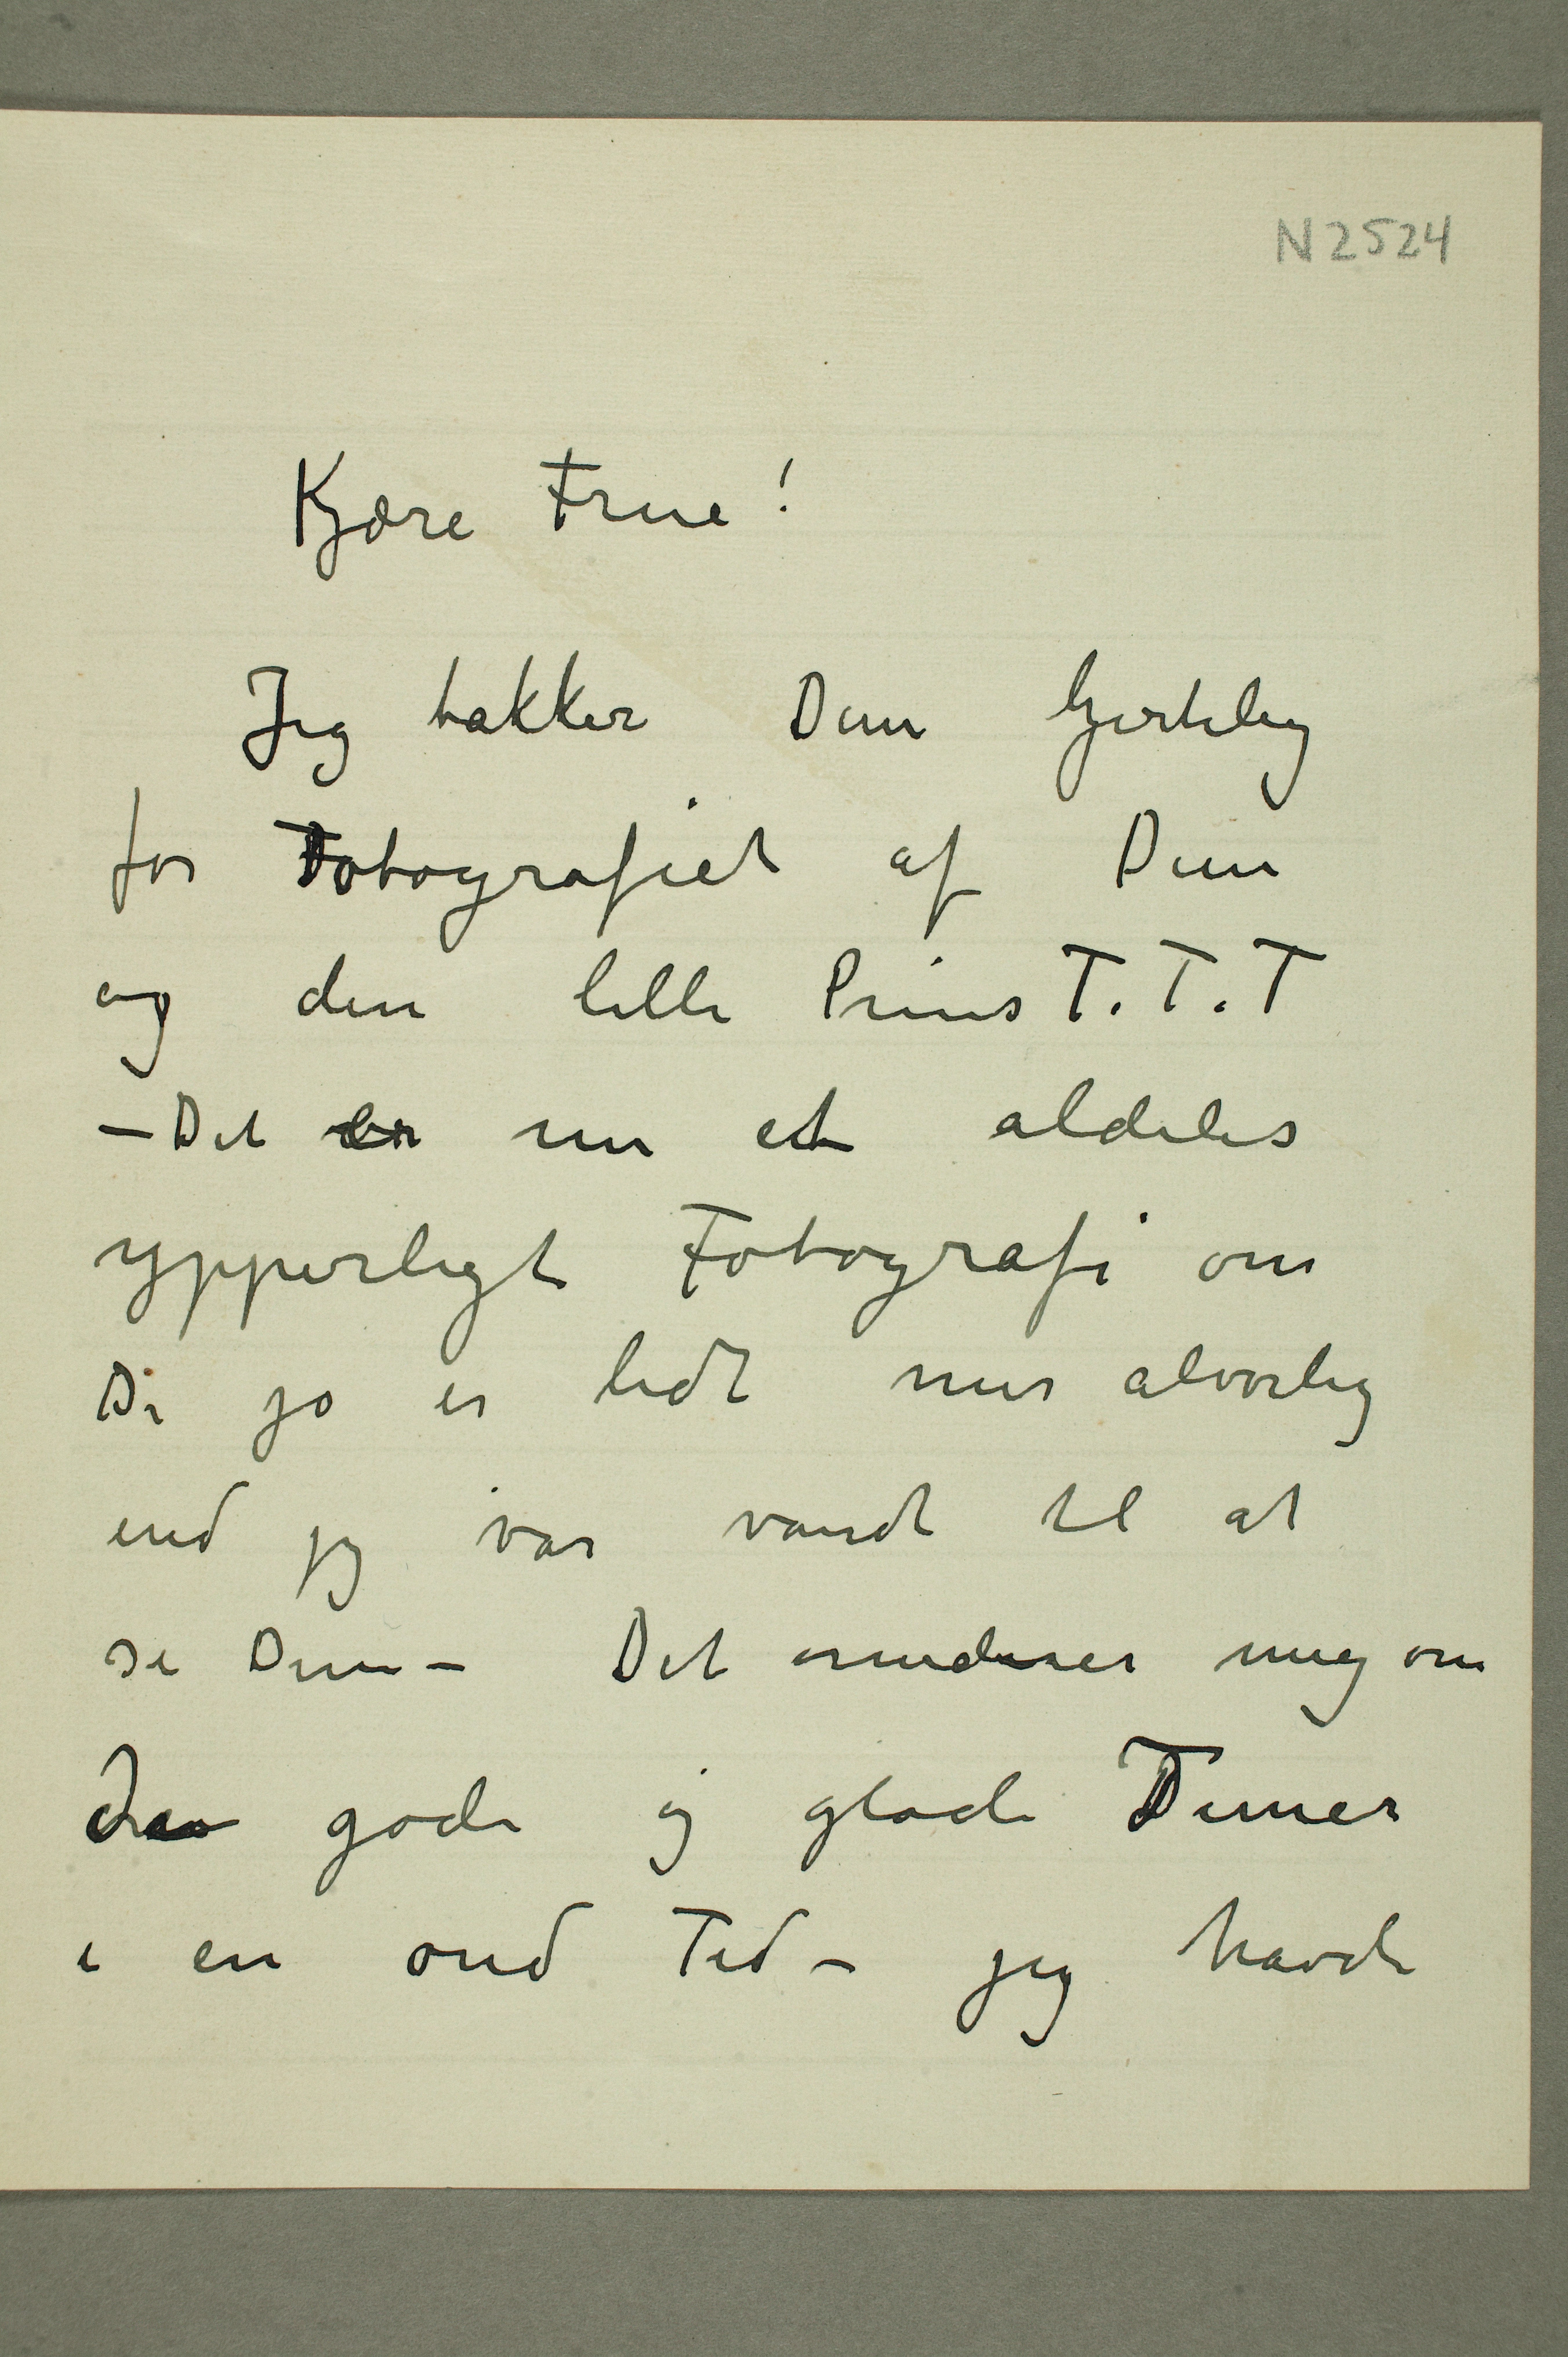 N 2524
Kjære Frue!
Jeg takker Dem hjertelig
for Fotografiet af Dem
og den lille Prins T. T. T
– Det er nu et aldeles
ypperligt Fotografi om
De jo er lidt mer alvorlig
end jeg var vandt til at
se Dem – Det minder mig om
de gode og glade Timer
i en ond Tid – jeg havde